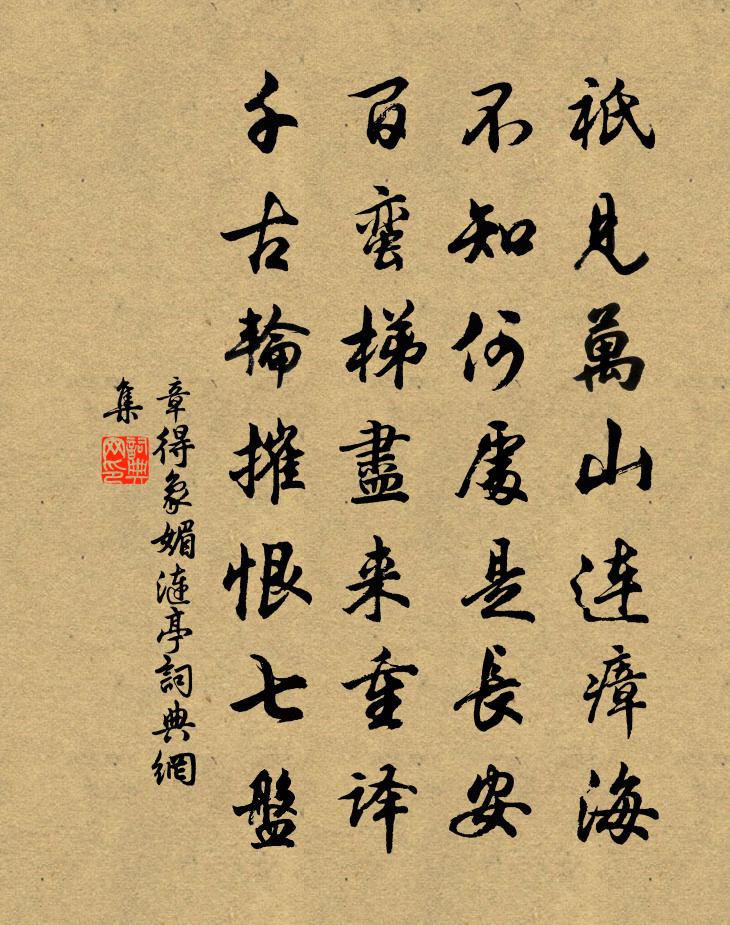 祇見萬山連瘴海
不知何處是長安
百蛮梯盡来重译
千古輪摧恨七盤
章得象媚漣亭詞典網
集
詞典網印